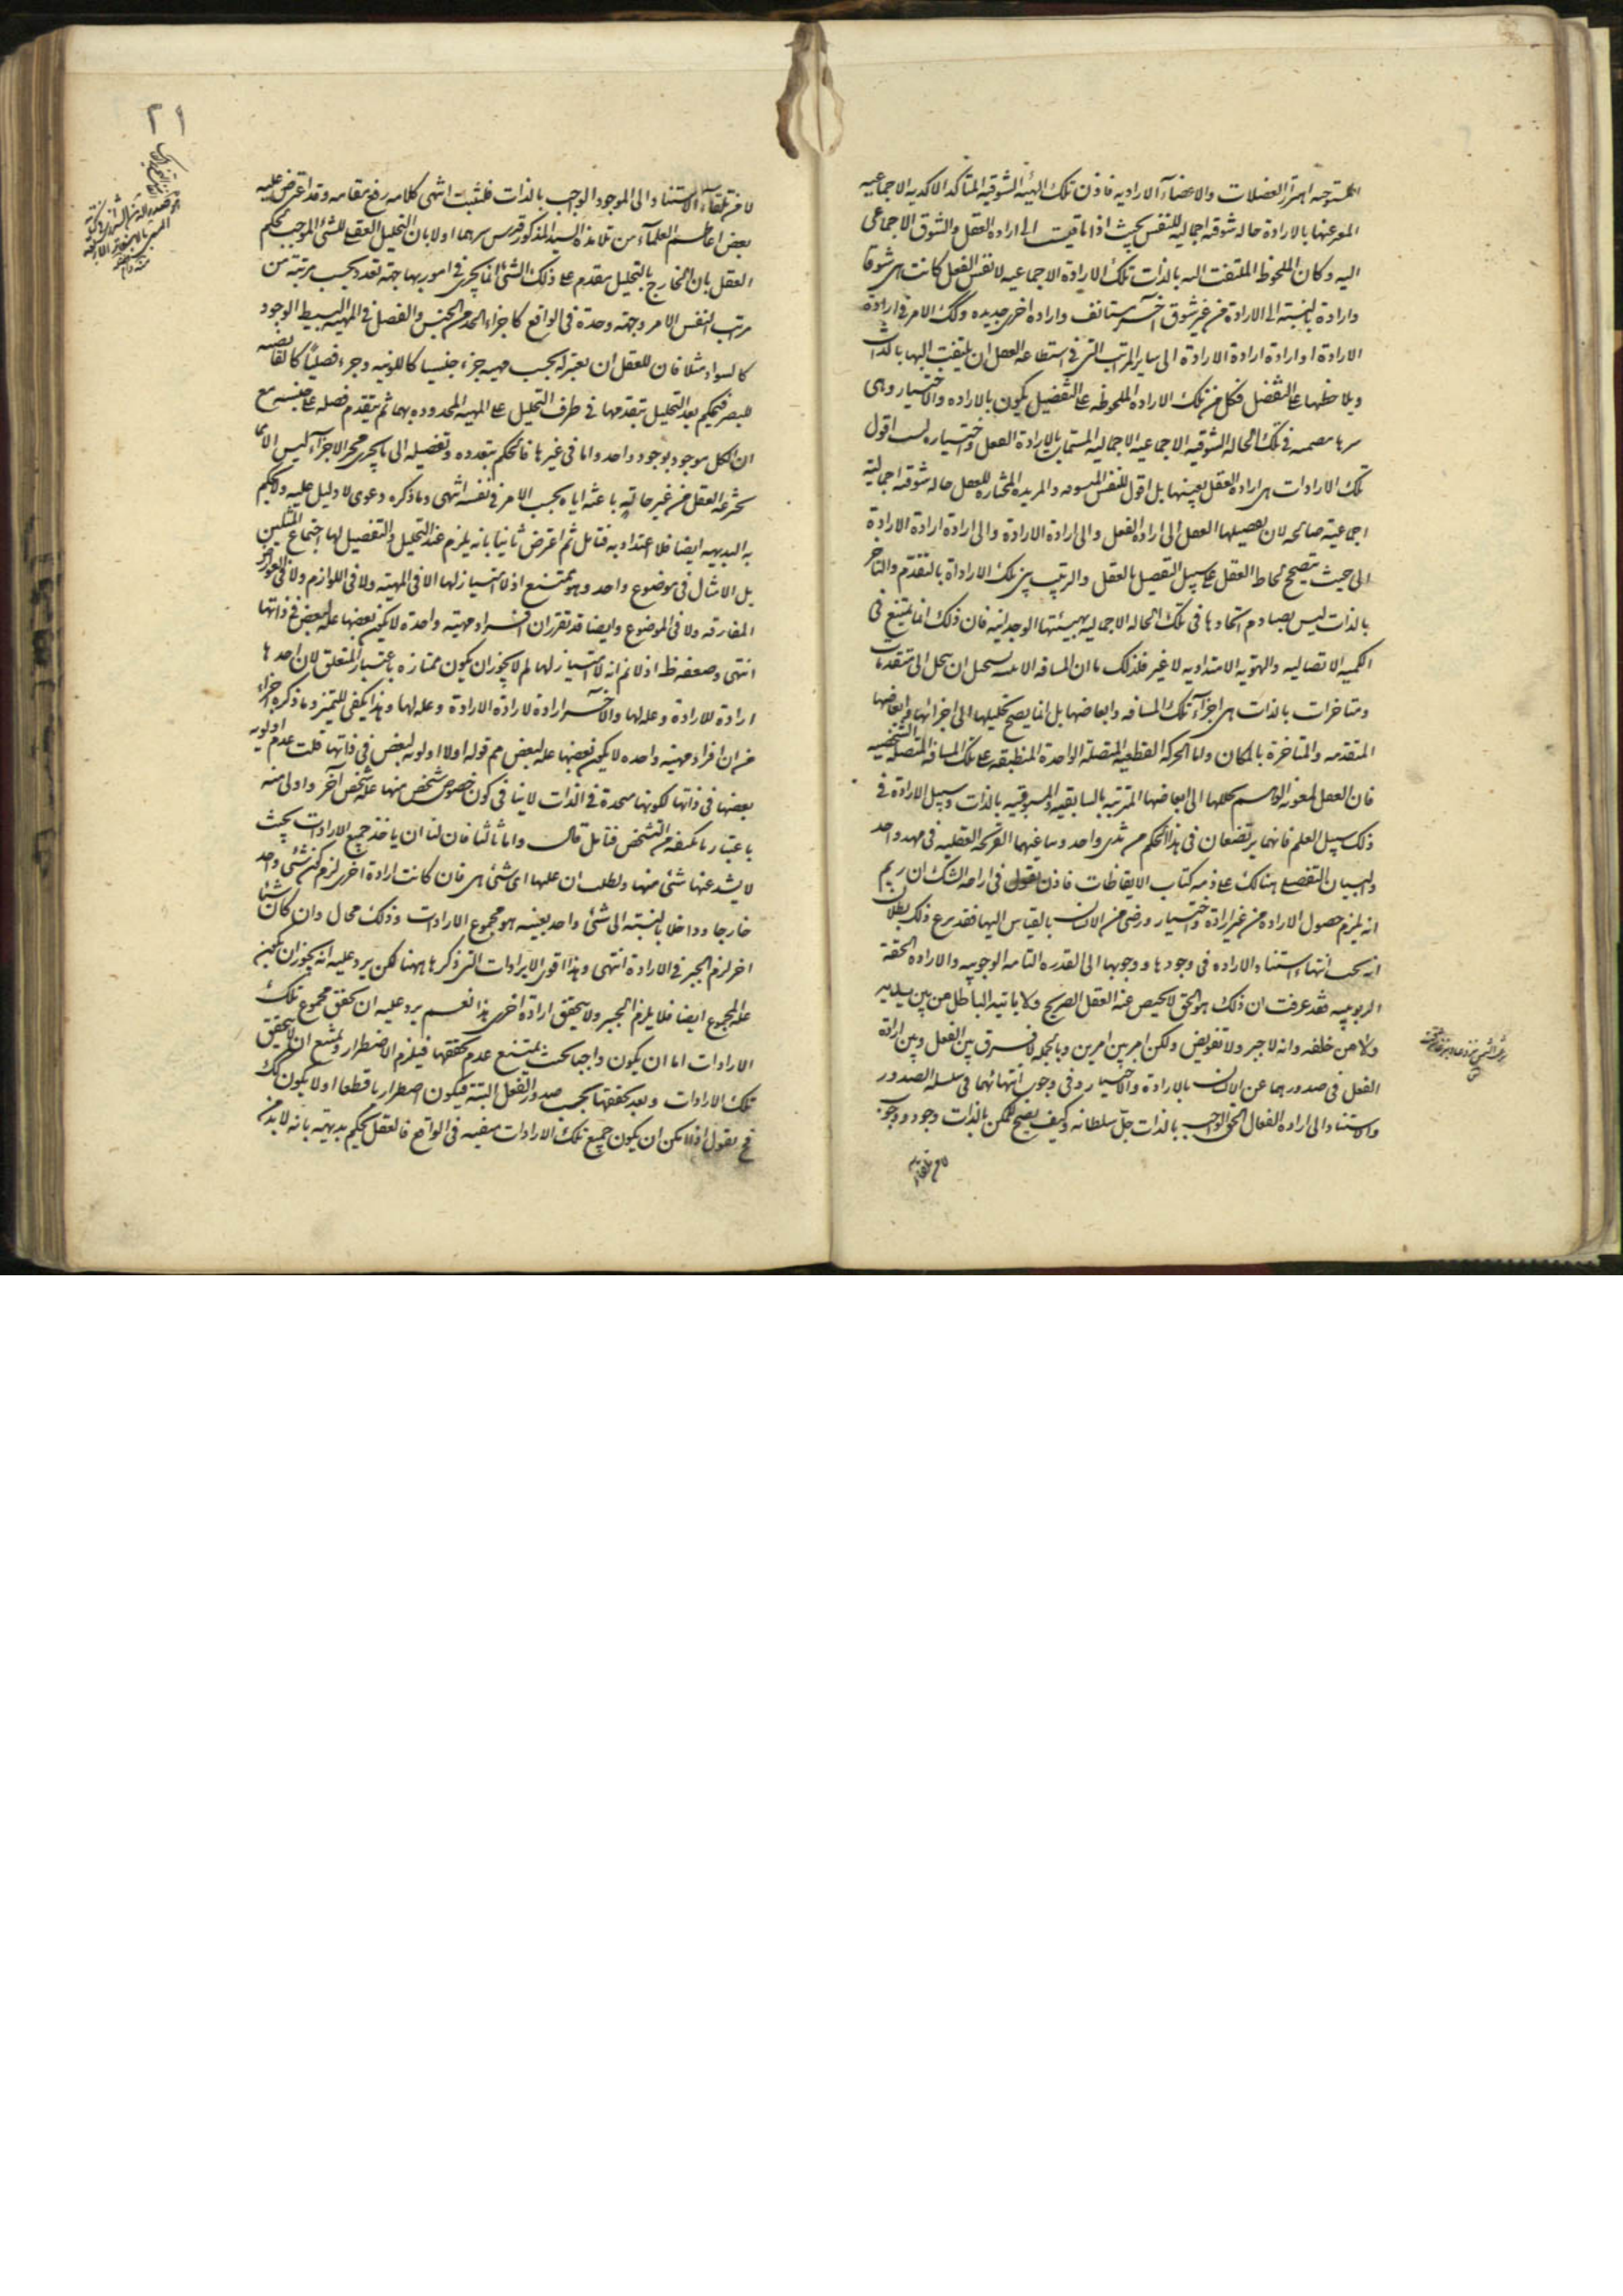 المستوجبه اهتزاز العضلات والاعضاء الاراديه فاذن تلك الهيئة الشوقيه المتاكدة الاكيديه الاجماعيه
المعبر عنها بالارادة حاله شوقيه اجماليه للنفس بحيث اذا ما قيست الى اراده الفعل والشوق الاجماعى
اليه وكان الملحوظ الملتفت اليه بالذات تلك الارادة الاجماعيه لا نفس الفعل كانت هى شوقا
وارادة بالنسبة الى الارادة من غير شوق آخر مستانف وارادة اخرى جديده وكذلك الامر فى ارادة
الارادة او ارادة ارادة الارادة الى ساير المراتب التى فى استطاعه العقل ان يلتفت اليها بالذات
ويلاحظها على التفصيل فكل من تلك الارادة الملحوظه على التفصيل يكون بالاراده والاختيار وهى
مضمنه فى تلك الحاله الشوقيه الاجماعيه الاجماليه المسماة بالارادة الفعل واختياره لست اقول
تلك الارادات هى اراده الفعل بعينها بل اقول للنفس والمريده المختاره للفعل حاله شوقيه اجماليه
اجماعية صالحه لان يفصلها العقل الى ارادة الفعل والى ارادة الارادة والى ارادة ارادة الارادة
الى حيث يتصحح لحاظ العقل على سبيل التفصيل بالعقل والترتيب بين تلك الارادات بالتقدم والتاخر
بالذات ليس يصادم اتحادها فى تلك الحاله الاجماليه بهيئتها الوحدانيه فان ذلك انما يمتنع فى
الكميه الاتصاليه والهويه الامتداديه لا غير فلذلك ما ان المسافه يستحيل ان ينحل الى متقدمات
ومتاخرات بالذات هى اجزاء تلك المسافه وابعاضها بل انما يصح تحليلها الى اجزائها وابعاضها
المتقدمه والمتاخرة بالمكان واما الحركه القطعيه المتصله الواحدة المنطبقه على تلك المسافه المتصله الشخصيه
فان العقل بمعونه الوهم يحللها الى ابعاضها المترتبه بالسابقيه والمسبوقيه بالذات وسبيل الارادة فى
ذلك سبيل العلم فانهما يرتضعان فى هذا الحكم من ثدى واحد وساغيهما القريحه العقليه فى مهد واحد
والبيان التفصيلى هنالك على ذمه كتاب الايقاظات فاذن نقول فى ازاحه الشك ان ريم
انه يلزم حصول الاراده من غير ارادة واختيار ورضى من الانسان بالقياس اليها فقد بزغ ذلك بطلان
انه يجب انتهاء استناد الاراده فى وجودها ووجوبها الى القدره التامه الوجوبيه والاراده الحقه
الربوبيه فقد عرفت ان ذلك هو الحق لا محيص عنه العقل الصريح ولا ياتيه الباطل من بين يديه
ولا من خلفه وانه لا جبر ولا تفويض ولكن امر بين امرين وبالجمله لا فرق بين الفعل وبين ارادة
الفعل فى صدورهما عن الانسان بالارادة والاختيار وفى وجوب انتهائهما فى سلسله الصدور
والاستناد الى اراده الفعال الحق الواجب بالذات جل سلطانه وكيف يصح لممكن بالذات وجود ووجوب
لا من تلقاء الاستناد الى الموجود الواجب بالذات فليثبت انتهى كلامه رفع مقامه وقد اعترض عليه
بعض اعاظم العلماء من تلامذة السيد المذكور قدس سرهما اولا بان التحليل العقلى للشئ الموجب لحكم
العقل بان الخارج بالتحليل مقدم على ذلك الشئ انما يجرى فى امور بها جهة تعدد بحسب مرتبة من
مراتب النفس الامر وجهة وحدة فى الواقع كاجزاء الحد من الجنس والفصل فى المهيه البسيط الوجود
كالسواد مثلا فان للعقل ان يعتبر له بحسب مهيه جزء جنسيا كاللونيه وجزء فصليا كالقابضيه
للبصر فيحكم بعد التحليل بتقدمها فى ظرف التحليل على المهيه المحدوده بهما ثم بتقدم فصله على جنسه مع
ان الكل موجود بوجود واحد واما فى غيرها فالحكم بتعدده وتفصيله الى ما يجرى مجرى الاجزاء ليس الا مما
يخترعه العقل من غير حالة باعثه اياه بحسب الامر فى نفسه انتهى وما ذكره دعوى لا دليل عليه ولا يحكم
به البديهيه ايضا فلا اعتداد به فتامل ثم اعترض ثانيا بانه يلزم عند التحليل والتفصيل لها اجتماع المثلين
بل الامثال فى موضوع واحد وهو ممتنع اذ لا امتياز لها لا فى المهيه ولا فى اللوازم ولا فى العوارض
المفارقه ولا فى الموضوع وايضا قد تقرر ان افراد مهية واحدة لا يكون بعضها علة لبعض فى ذاتها
انتهى وضعفه ظ اذ لا نم انه لا امتياز لها لم لا يجوز ان يكون ممتازه باعتبار المتعلق لان احدها
ارادة للارادة وعله لها والآخر ارادة لارادة الارادة وعله لها وهذا يكفى للتميز وما ذكره اخيرا
من ان افراد مهية واحده لا يكون بعضها علة لبعض مم قوله اولا اولويه لبعض فى ذاتها قلت عدم اولويه
بعضها فى ذاتها لكونها متحدة فى الذات لا ينافى كون خصوص شخص منها علة لشخص آخر واولى منه
باعتبار ما يكتنفه من التشخص فتامل قال واما ثالثا فان لنا ان ياخذ جميع الارادات بحيث
لا يشذ عنها شئ منها ونطلب ان علتها اى شئ هى فان كانت ارادة اخرى لزم كون شئ واحد
خارجا وداخلا بالنسبة الى شئ واحد بعينه هو مجموع الارادات وذلك محال وان كان شيئا
آخر لزم الجبر فى الارادة انتهى وهذا اقوى الايرادات التى ذكرها ههنا لكن يرد عليه انه يجوز ان يكون
علة المجموع ايضا فلا يلزم الجبر ولا يتحقق ارادة اخرى هذا نعم يرد عليه ان تحقق مجموع تلك
الارادات اما ان يكون واجبا بحيث يمتنع عدم تحققها فيلزم الاضطرار ويمتنع ان لا يتحقق
تلك الارادات وبعد تحققها يجب صدور الفعل البتة فيكون اضطراريا قطعا او لا يكون كذلك
فح نقول اذا امكن ان يكون جميع تلك الارادات منفيه فى الواقع فالعقل يحكم بديهة بانه لا بد من
٢١